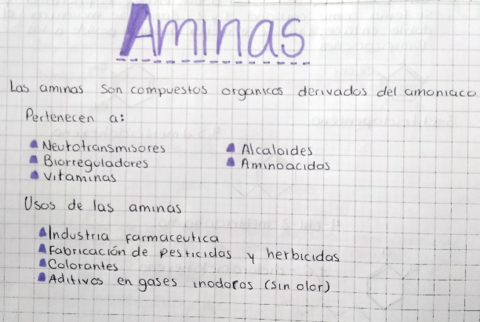 Aminas
Las aminas son compuestos organicos derivados del amoniaco
Pertenecen a:
Neutotransmisores
Biorreguladores
Vitaminas
Alcaloides
Aminoacidos
Usos de las aminas
Industria farmaceutica
Fabricación de pesticidas y herbicidas
Colorantes
Aditivos en gases inodoros (sin olor)